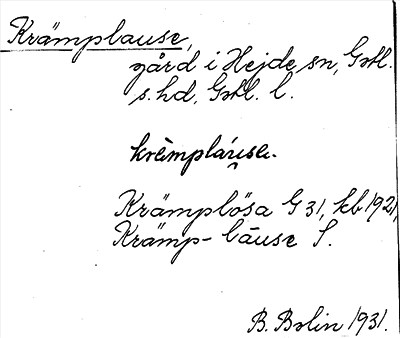 Krämplause,
gård i Hejde sn, Gotl.
s. hd, Gotl. l.
krämpláu̯sa.
Krämplösa G 31, kb 1921,
Krämp-lause S.
B. Bolin 1931.